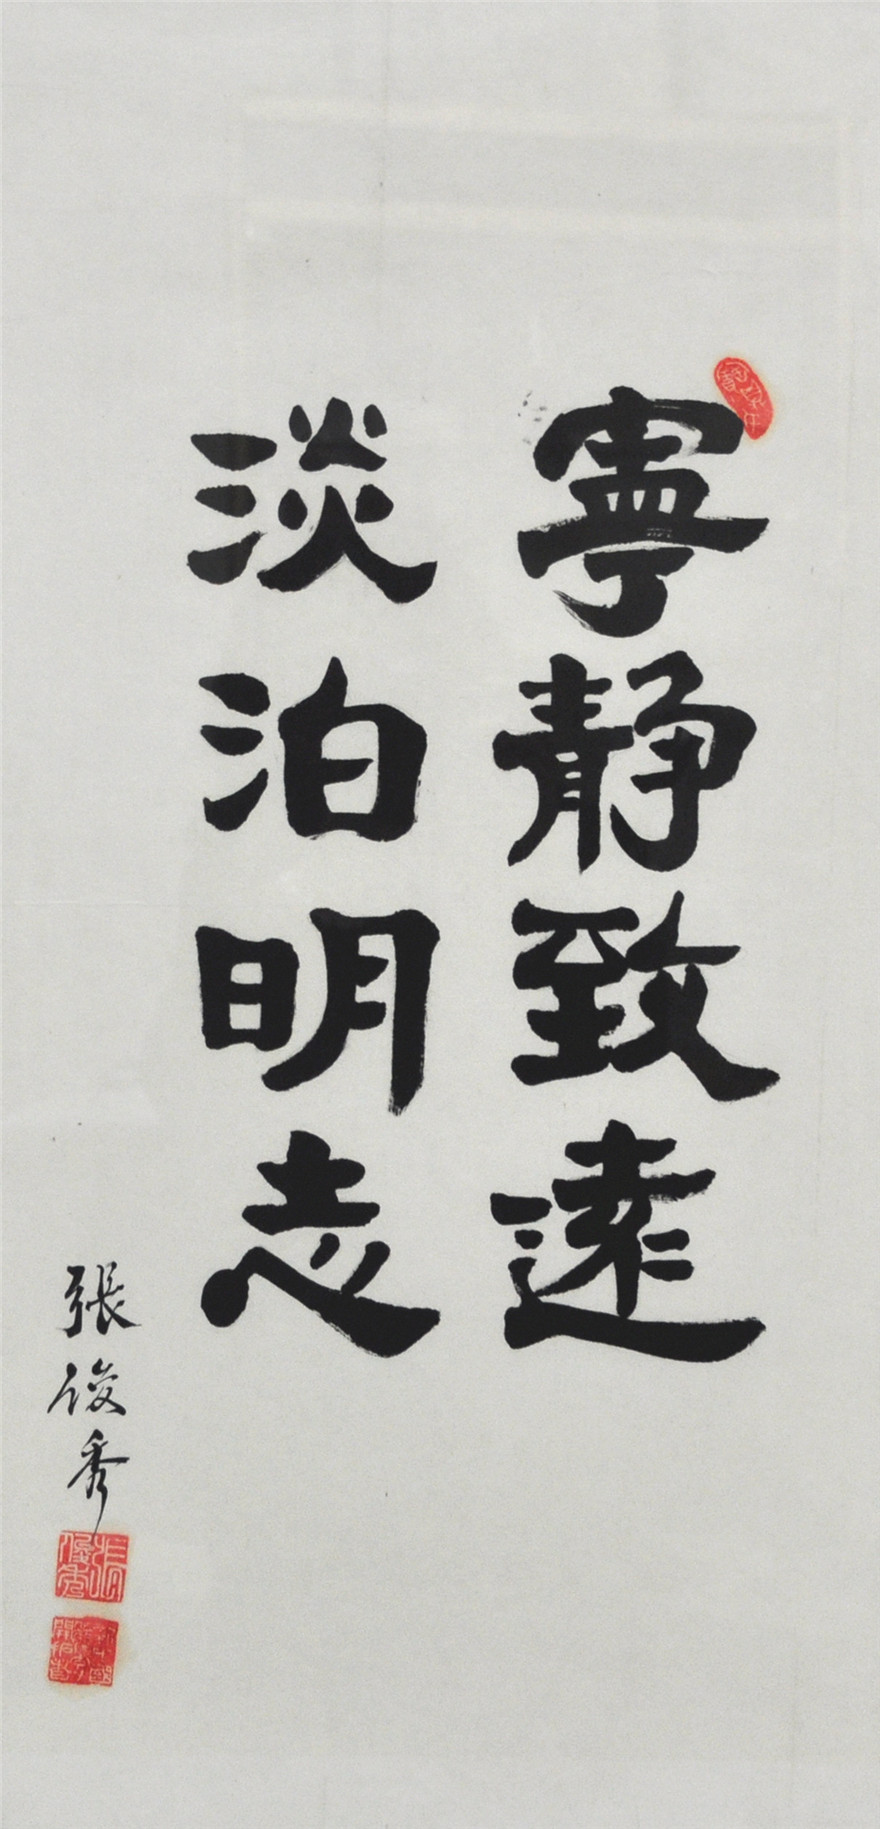 寧靜致遠
淡泊明志
張俊秀